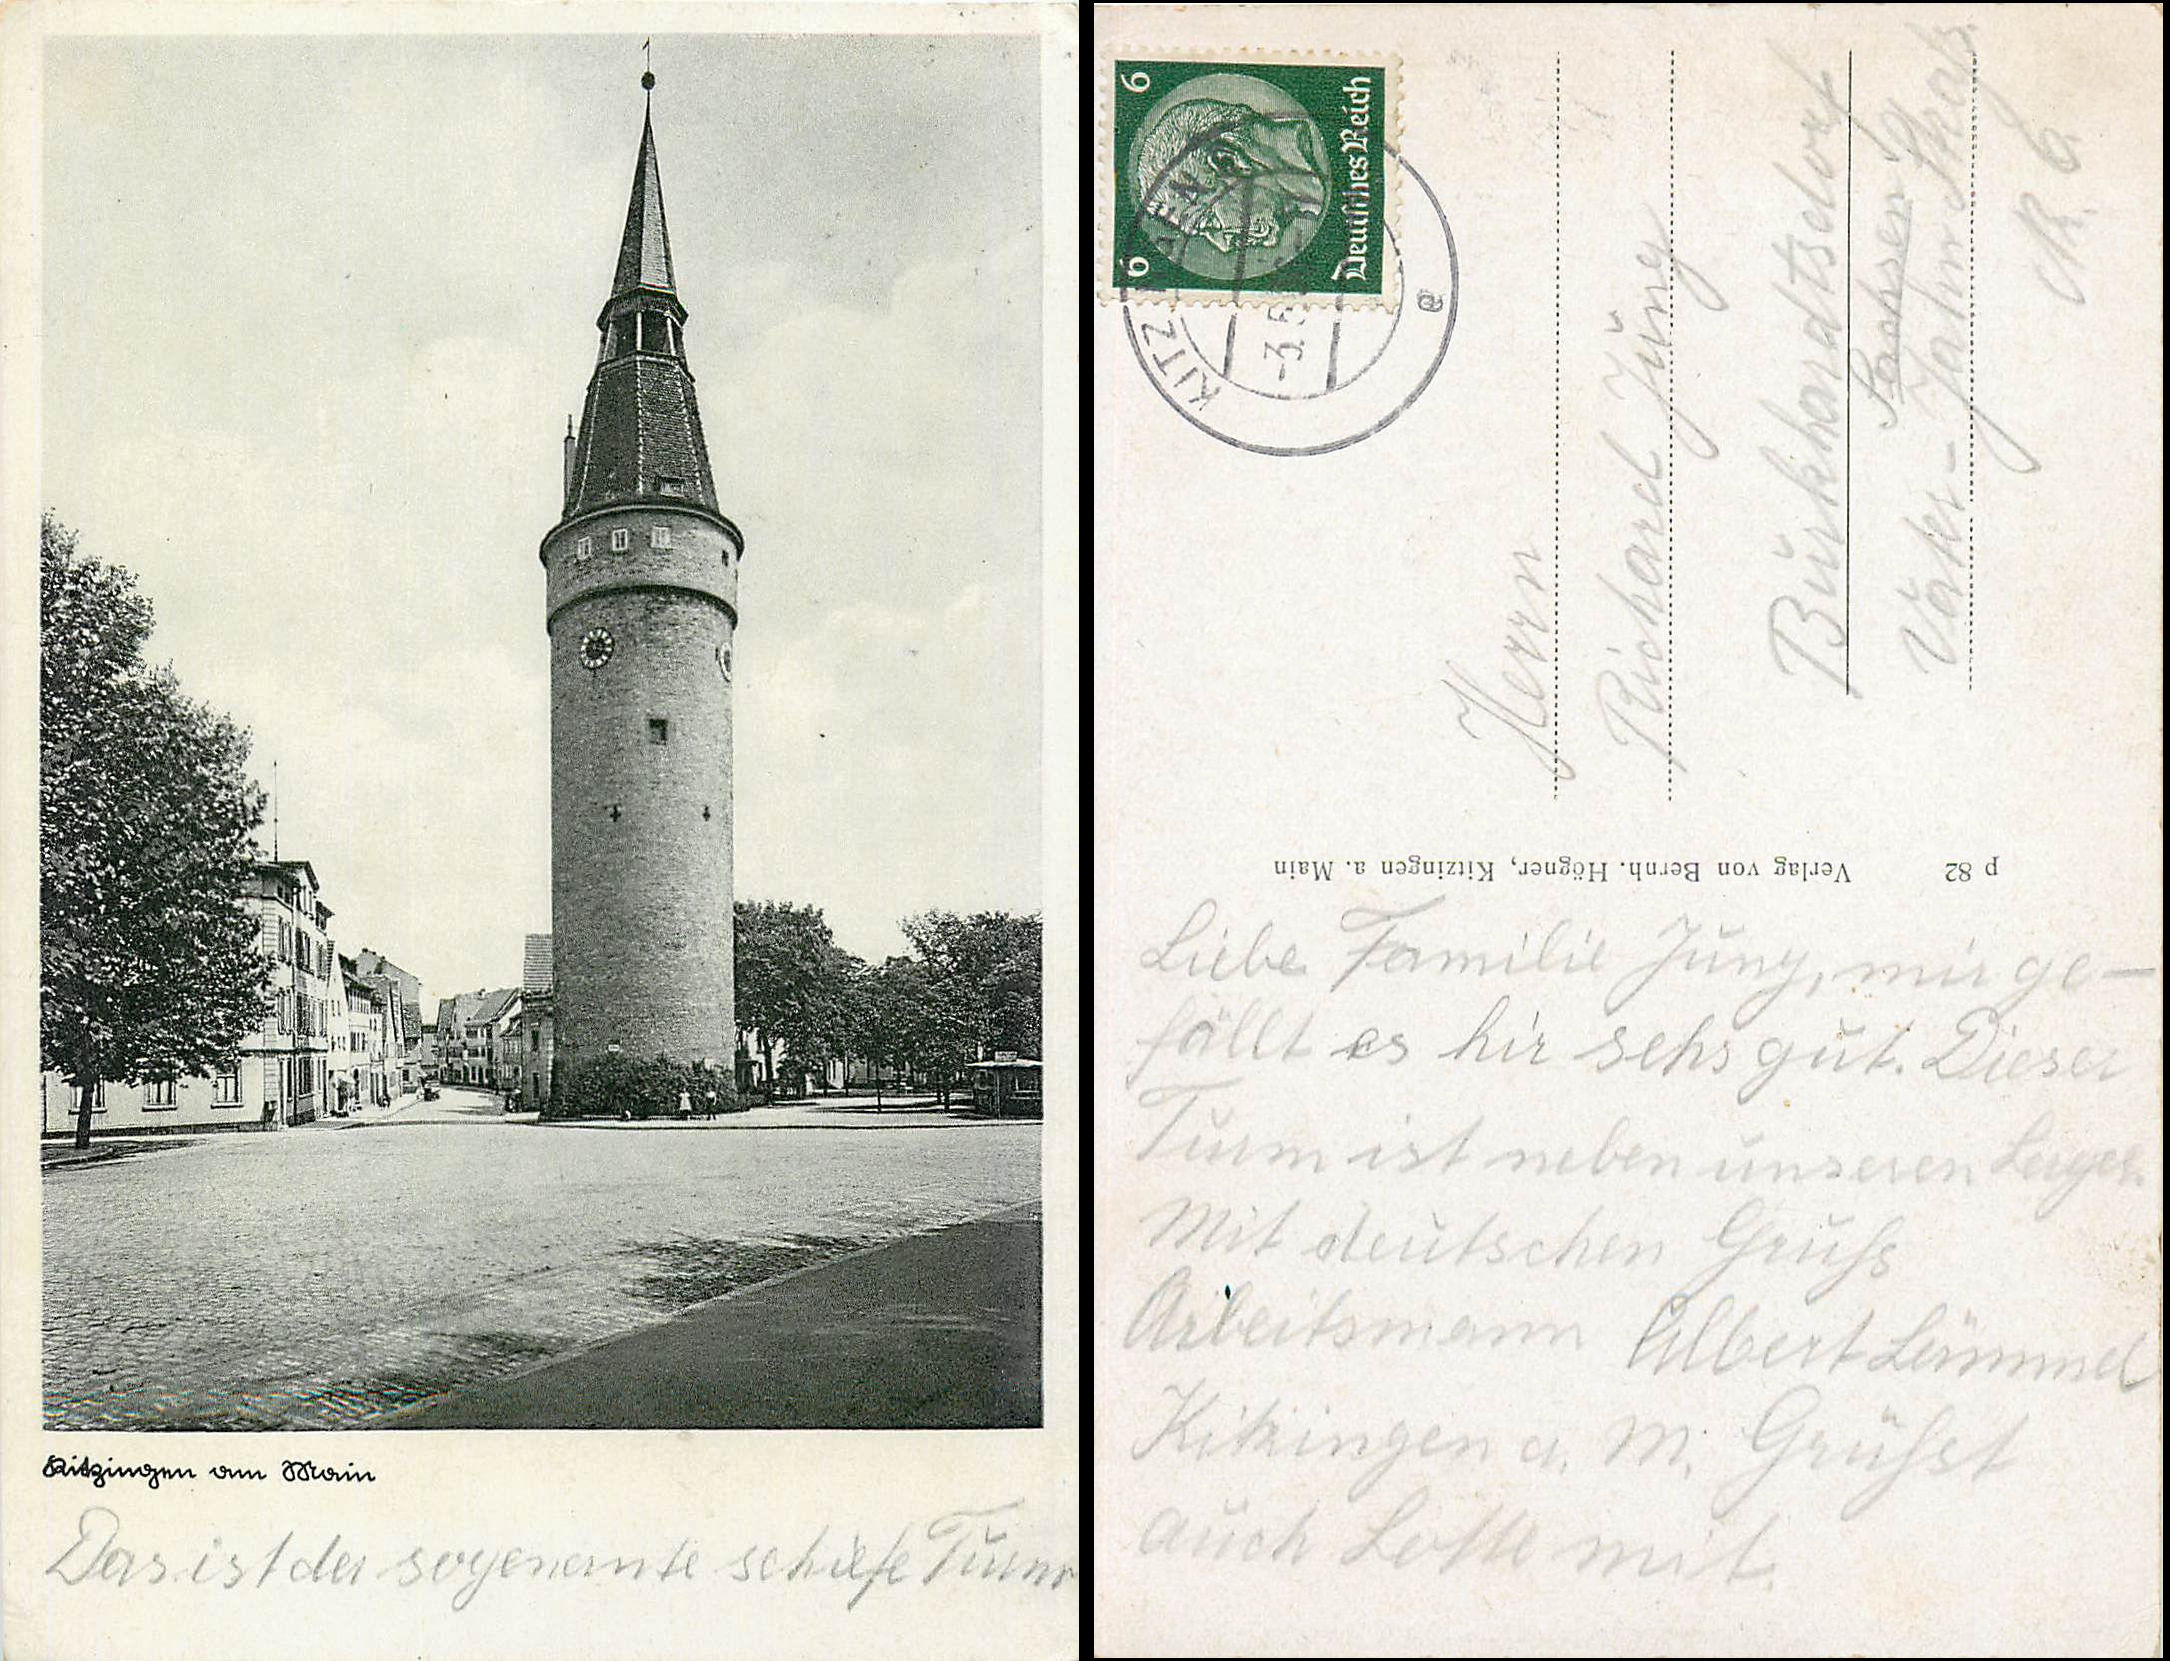 Kitzingen am Main
Das ist der sogenannte schiefe Turm
6
6
Deutsches Reich
KITZINGEN
-3.5.
e
Herrn
Richard Jung
Burkhardtsdorf
Sachsen
Vater-Jahn Straß.
Nr. 6
Verlag von Bernh. Högner, Kitzingen a. Main
p 82
Liebe Familie Jung, mir ge-
fällt es hir sehr gut. Dieser
Turm ist neben unseren Lager.
Mit deutschen Gruß
Arbeitsmann Albert Lämmel
Kitzingen a. M. Grüßt
auch Lotte mit.